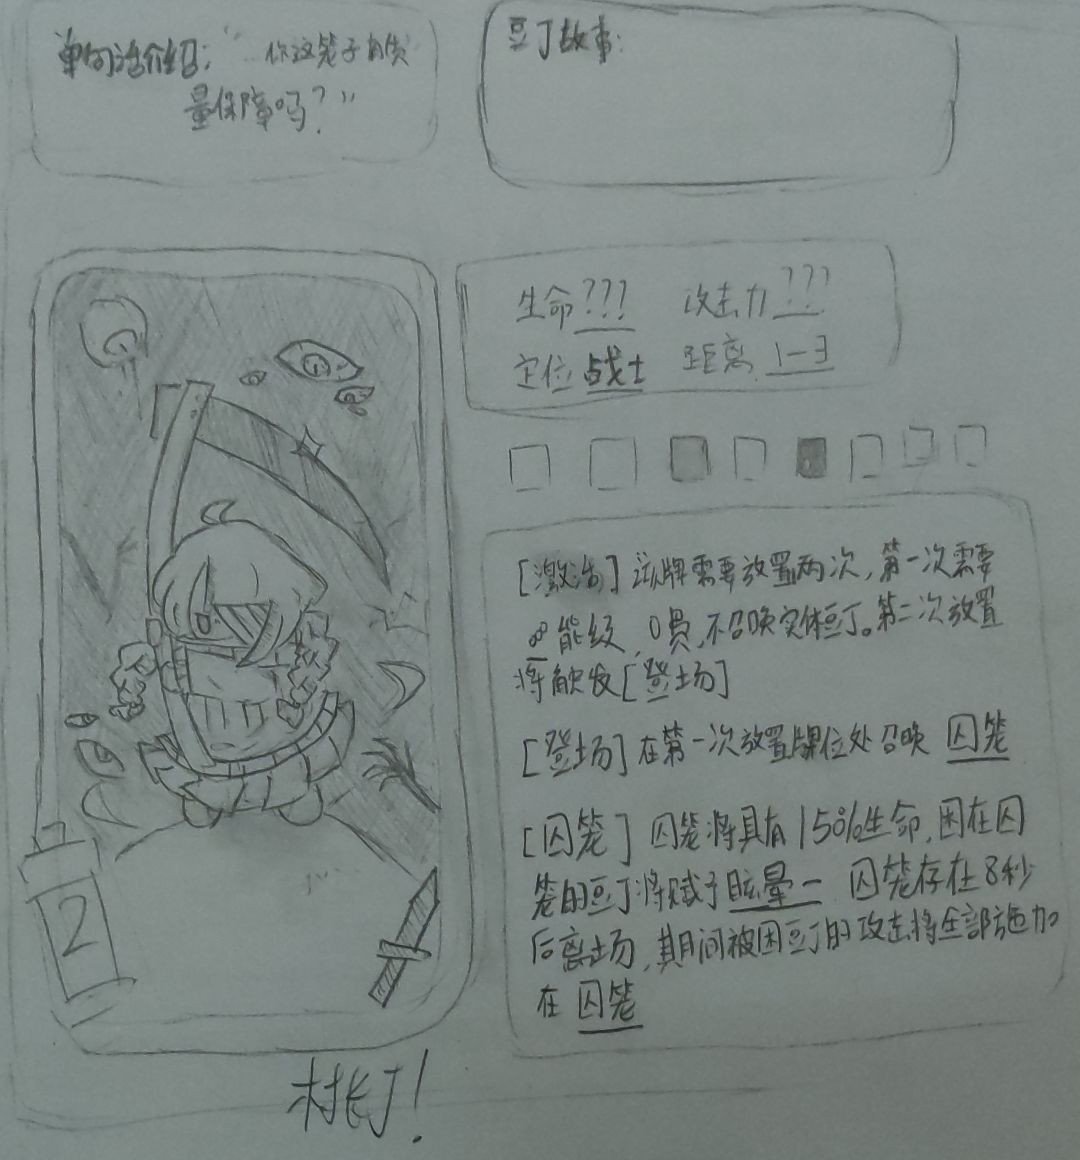 单句话介绍："…你这笼子有质
量保障吗？"
豆丁故事：
生命??? 攻击力???
定位 战士 距离 1-3
[激活] 该牌需要放置两次，第一次需要
∞能级，0费，不召唤实体豆丁。第二次放置
将触发[登场]
[登场] 在第一次放置牌位处召唤 囚笼
[囚笼] 囚笼将具有150%生命，困在囚
笼的豆丁将赋予眩晕一 囚笼存在8秒
后离场，其期间被困豆丁的攻击将全部施加
在 囚笼
2
村长丁！